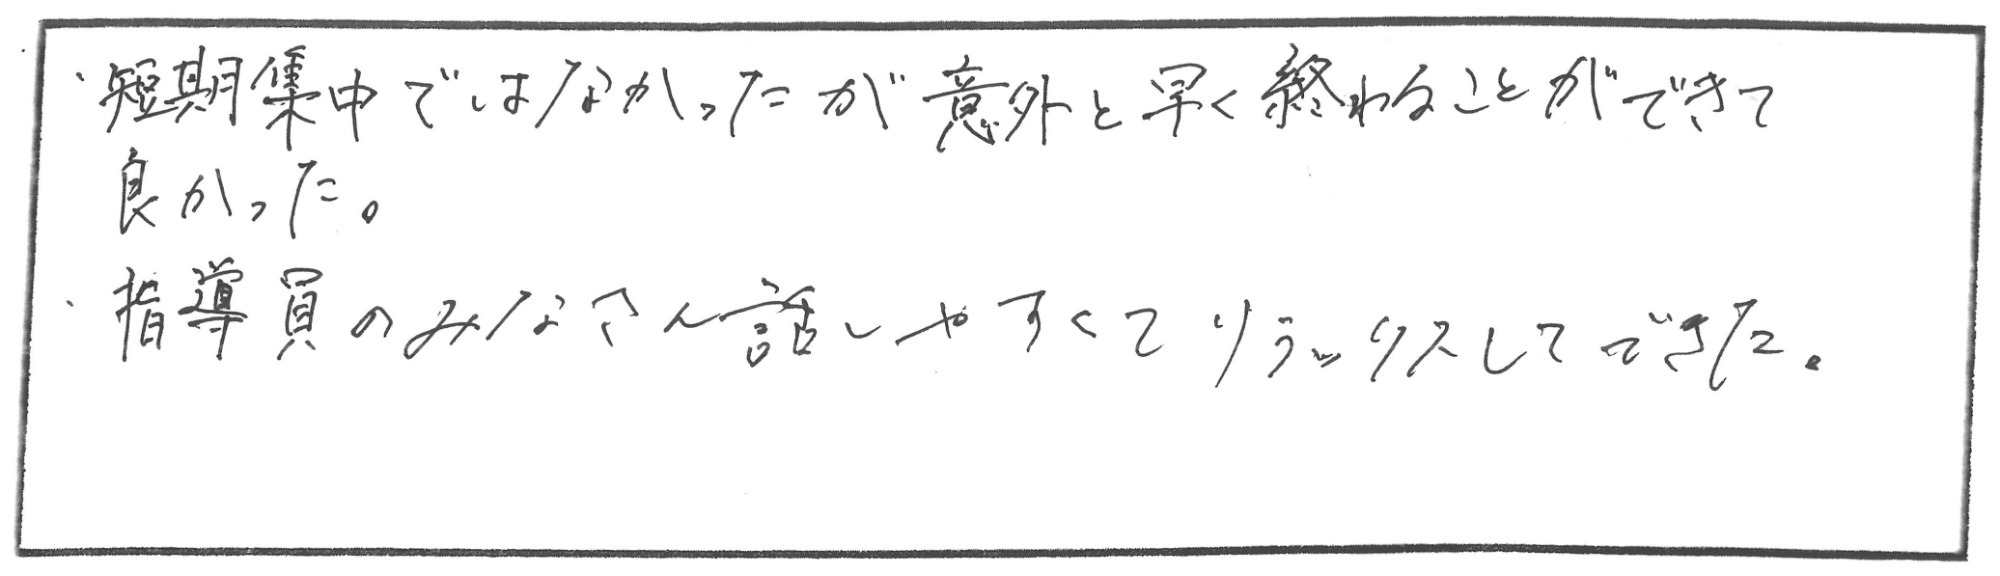 ・短期集中ではなかったが意外と早く終わることができて
良かった。
・指導員のみなさん話しやすくてリラックスしてできた。